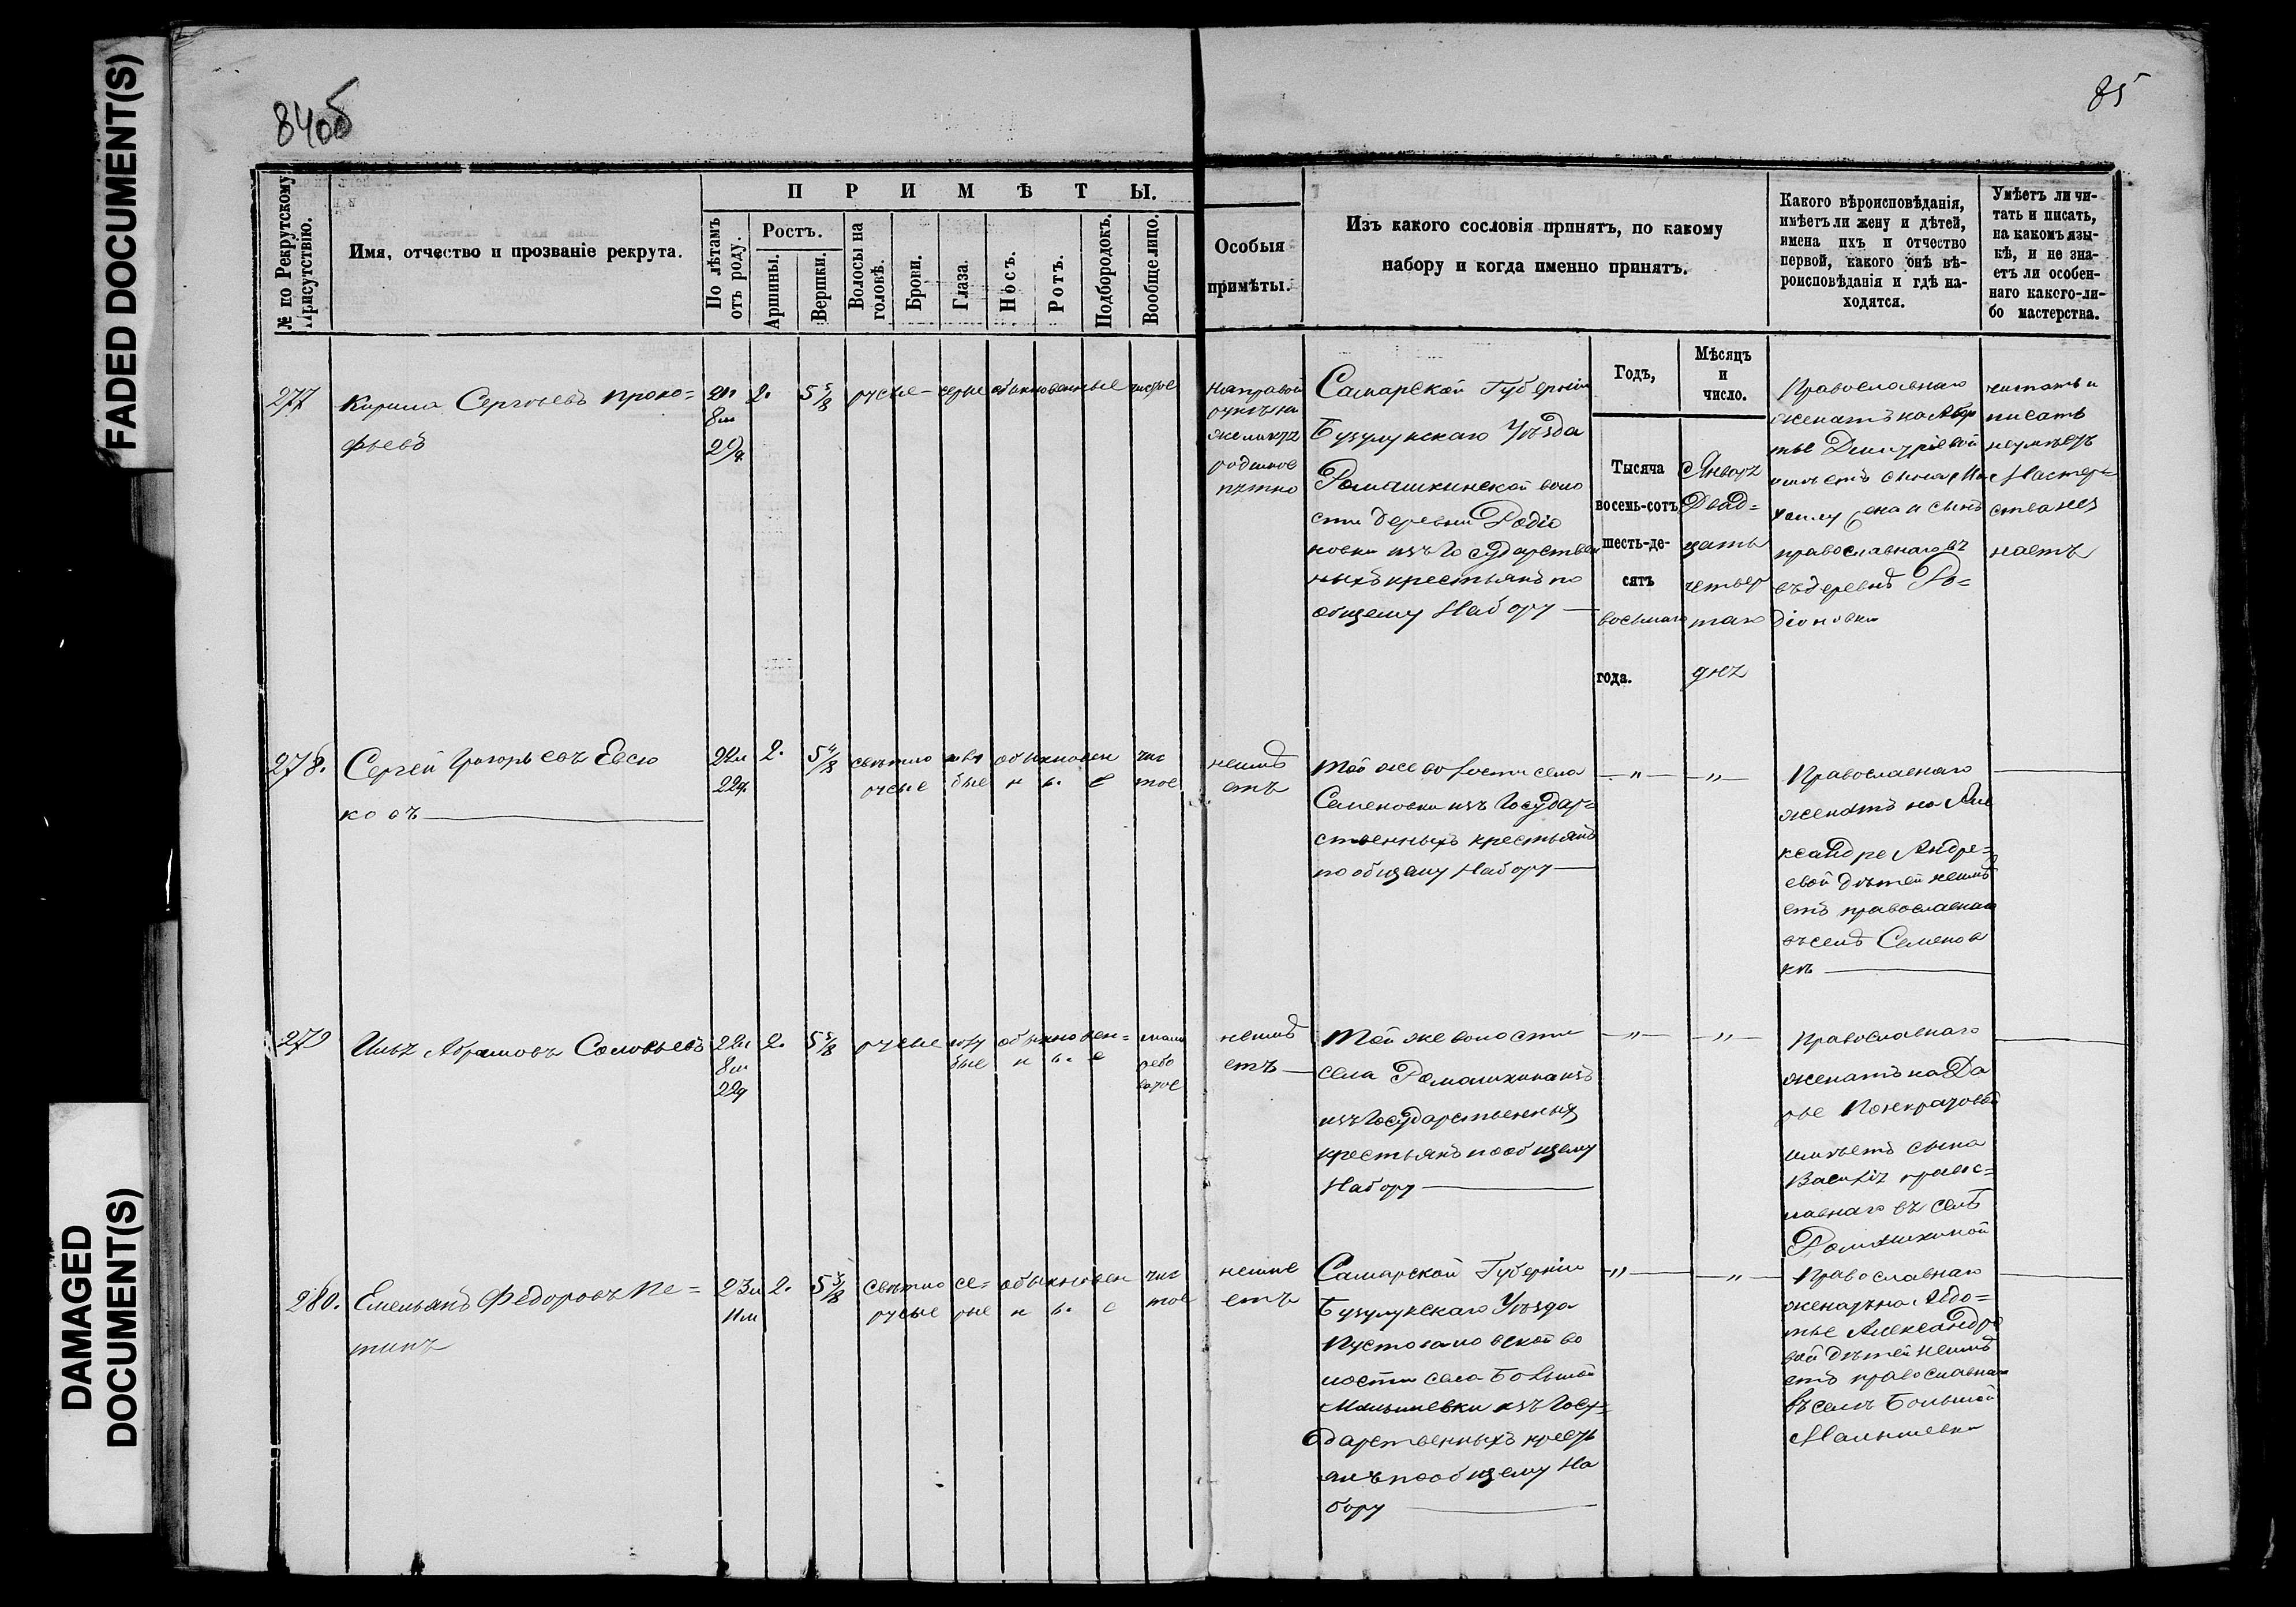 FADED DOCUMENT(S)
DAMAGED
DOCUMENT(S)
84об
85
№ по Рекрутскому
Присутствію.
Имя, отчество и прозваніе рекрута.
ПРИМѢТЫ.
По лѣтамъ
отъ роду.
Ростъ.
Аршины.
Вершки.
Волосы на
головѣ.
Брови.
Глаза.
Носъ.
Ротъ.
Подбородокъ.
Вообще лицо.
Особыя
примѣты.
Изъ какого сословія принятъ, по какому
набору и когда именно принятъ.
Какого вѣроисповѣданія,
имѣетъ ли жену и дѣтей,
имена ихъ и отчество
первой, какого онѣ вѣ-
роисповѣданія и гдѣ на-
ходятся.
Умѣетъ ли чи-
тать и писать,
на какомъ язы-
кѣ, и не зна-
етъ ли особен-
наго какого-ли-
бо мастерства.
277
Кирила Сергѣевъ Проко=
фьевъ
8м
2.
5 5/8
русые
серые
обыкновенные
чистое
На правой
руке на
родимое
пятно
Самарской Губерніи
Бузулукскаго Уѣзда
Ромашкинской воло
сти деревни Родіо
новки изъ Государствен
ныхъ крестьянъ по
общему Набору
Годъ,
Мѣсяцъ
и
число.
Тысяча
восемь-сотъ
шесть-де-
сятъ
восьмаго
года.
Января
Двад=
цать
четвер
таго
дня
Православнаго
женатъ на Авдо
тье Димитріевой
имѣетъ сына
жена и сынъ
православнаго
въ деревнѣ Ро=
діоновки
читать и
писать
неумѣетъ
Мастер=
ства нез
наетъ
278.
Сергей Григорьевъ Евсю
ковъ
22л
22д
2.
5 4/8
светло
русые
голу
бые
обыкновен
н ы е
чис
тое
неимѣ
етъ
Той же волости села
Семеновки изъ Государ=
ственныхъ крестьянъ
по общему Набору
„
„
Православнаго
женатъ на Але
ксандре Андре=
евой дѣтей неимѣ
етъ православнаго
въ селѣ Семенов
кѣ
279
Илья Абрамовъ Соловьевъ
22л
8м
22д
2.
5 5/8
русые
голу
бые
обыкновен=
н ы е
мало
рябо
ватое
неимѣ
етъ
Той же волости
села Ромашкина изъ
изъ Государственныхъ
крестьянъ по общему
Набору
„
„
Православнаго
женатъ на Да
рье Понкратовой
имѣетъ сына
Василія правос=
лавнаго въ селѣ
Ромашкиной
280.
Емельянъ Федоровъ Пе=
тинъ
23л
11м
2.
5 3/8
светло
русые
се=
рые
обыкновен
н ы е
чис
тое
неиме
етъ
Самарской Губерніи
Бузулукскаго Уѣзда
волости села Большой
Малышевки изъ Госу=
дарственныхъ кресть
янъ по общему На
бору
„
„
Православнаго
женатъ на Авдо=
тье Александро
вой дѣтей неимѣ
етъ православнаго
въ селѣ Большой
Малышевки